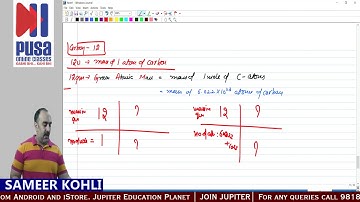 PUSA
ONLINE CLASSES
Carbon - 12
12U → mass of 1 atom of carbon
12gm → Gram Atomic Mass = mass of 1 mole of C-atoms
= mass of 6.022×10²³ atoms of carbon
mass in gm 12 ?
no of mole = 1 ?
mass in gm 12 ?
?
SAMEER KOHLI
om Android and iStore. Jupiter Education Planet | JOIN JUPITER | For any queries call 9818